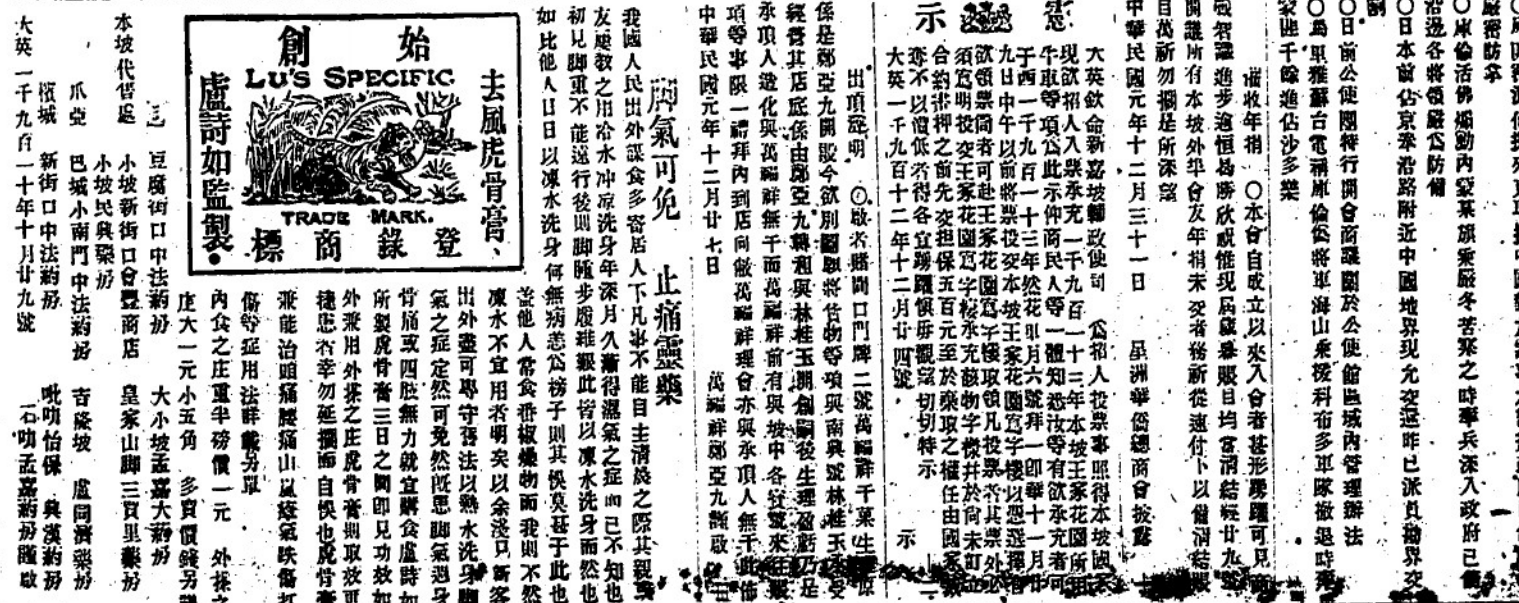 ○庫倫活佛煽動內蒙某旗乘嚴冬苦寒之時率兵深入政府已
沿邊各將領嚴為防備
○日本前佔京奉沿路附近中國地界現允交還昨已派員勘界交
○日前公使團特行開會商議關於公使館區域內管理辦法
○烏里雅蘇台電稱庫倫偽將軍海山乘撥科布多軍隊撤退時
千餘進佔沙多樂
催收年捐
○本會自成立以來入會者甚形踴躍可見
智識進步逾恒曷勝欣慰惟現屆歲暮賬目均當清結
開議所有本坡外埠會友年捐未交者務祈從速付下以備清結
目萬祈勿擱是所深望
中華民國元年十二月三十一日
星洲華僑總商會披露
示
大英欽命新嘉坡輔政使司
為招人投票事照得本坡國家
現欲招人入票承充一千九百一十三年本坡王家花園所
牛車等項為此示仰商民人等一體知悉汝等有欲承充者可
于西一千九百一十三年然花阯月六號拜一即華十一月廿
九日中午以前將票投交本坡王家花園寫字樓以憑選擇
欲領票筒者可赴王家花園寫字樓取領凡投票者其票外必
須寫明投交王家花園寫字樓承充該物字樣幷於尚未訂立
合約掛押之前先交担保五百元至於棄取之權任由國家
不以價低者得各宜踴躍慎毋觀望切切特示
大英一千九百十二年十二月廿四號
示
出頂聲明
○啟者賭間口門牌二號萬福祥干菓生理原
係鄭亞九開設今欲別圖願將貨物等項與南興號林桂玉承受
經營其店底係由鄭亞九轉租與林桂玉開創嗣後生理盈虧乃是
承頂人造化與萬福祥無干而萬福祥前有與坡中各寶號來往賬
項等事限一禮拜內到店向敝萬福祥理會亦與承頂人無干此佈
中華民國元年十二月廿七日
萬福祥鄭亞九謹啟
脚氣可免
止痛靈藥
我國人民出外謀食多寄居人下凡事不能自主清晨之際其親
友慶教之用冷水冲凉洗身年深月久漸得濕氣之症而已不知也
初見脚重不能遠行後則脚腫步履維艱此皆以凍水洗身而然也
如此他人日日以凍水洗身何無病恙為榜子則其悞莫甚于此也
蓋他人常食番椒燥物而我則不然
凍水不宜用者明矣以余淺見新客
出外盡可專守舊法以熱水洗身脚
氣之症定然可免然既患脚氣週身
骨痛或四肢無力就宜購食盧詩如
所製虎骨膏三日之間即見功效如
外兼用外搽之庄虎骨膏則取效更
捷患者幸勿延擱而自悞也虎骨膏
兼能治頭痛腰痛山嵐瘴氣跌傷打
傷等症用法詳載另單
內食之庄重半磅價一元
外搽之
庄大一元小五角
多買價錢另
始創
LU'S SPECIFIC
去風虎骨膏、
盧詩如監製•
TRADE MARK.
登錄商標
豆腐街口中法葯房
大小坡孟嘉大葯房
本坡代售處
小坡新街口會豐商店
皇家山脚三貿里藥房
小坡民興藥房
爪亞
巴城小南門中法葯房
吉隆坡
盧同濟藥房
檳城
新街口中法葯房
吡叻怡保
興漢葯房
大英一千九百一十年十月廿九號
石叻孟嘉葯房謹啟